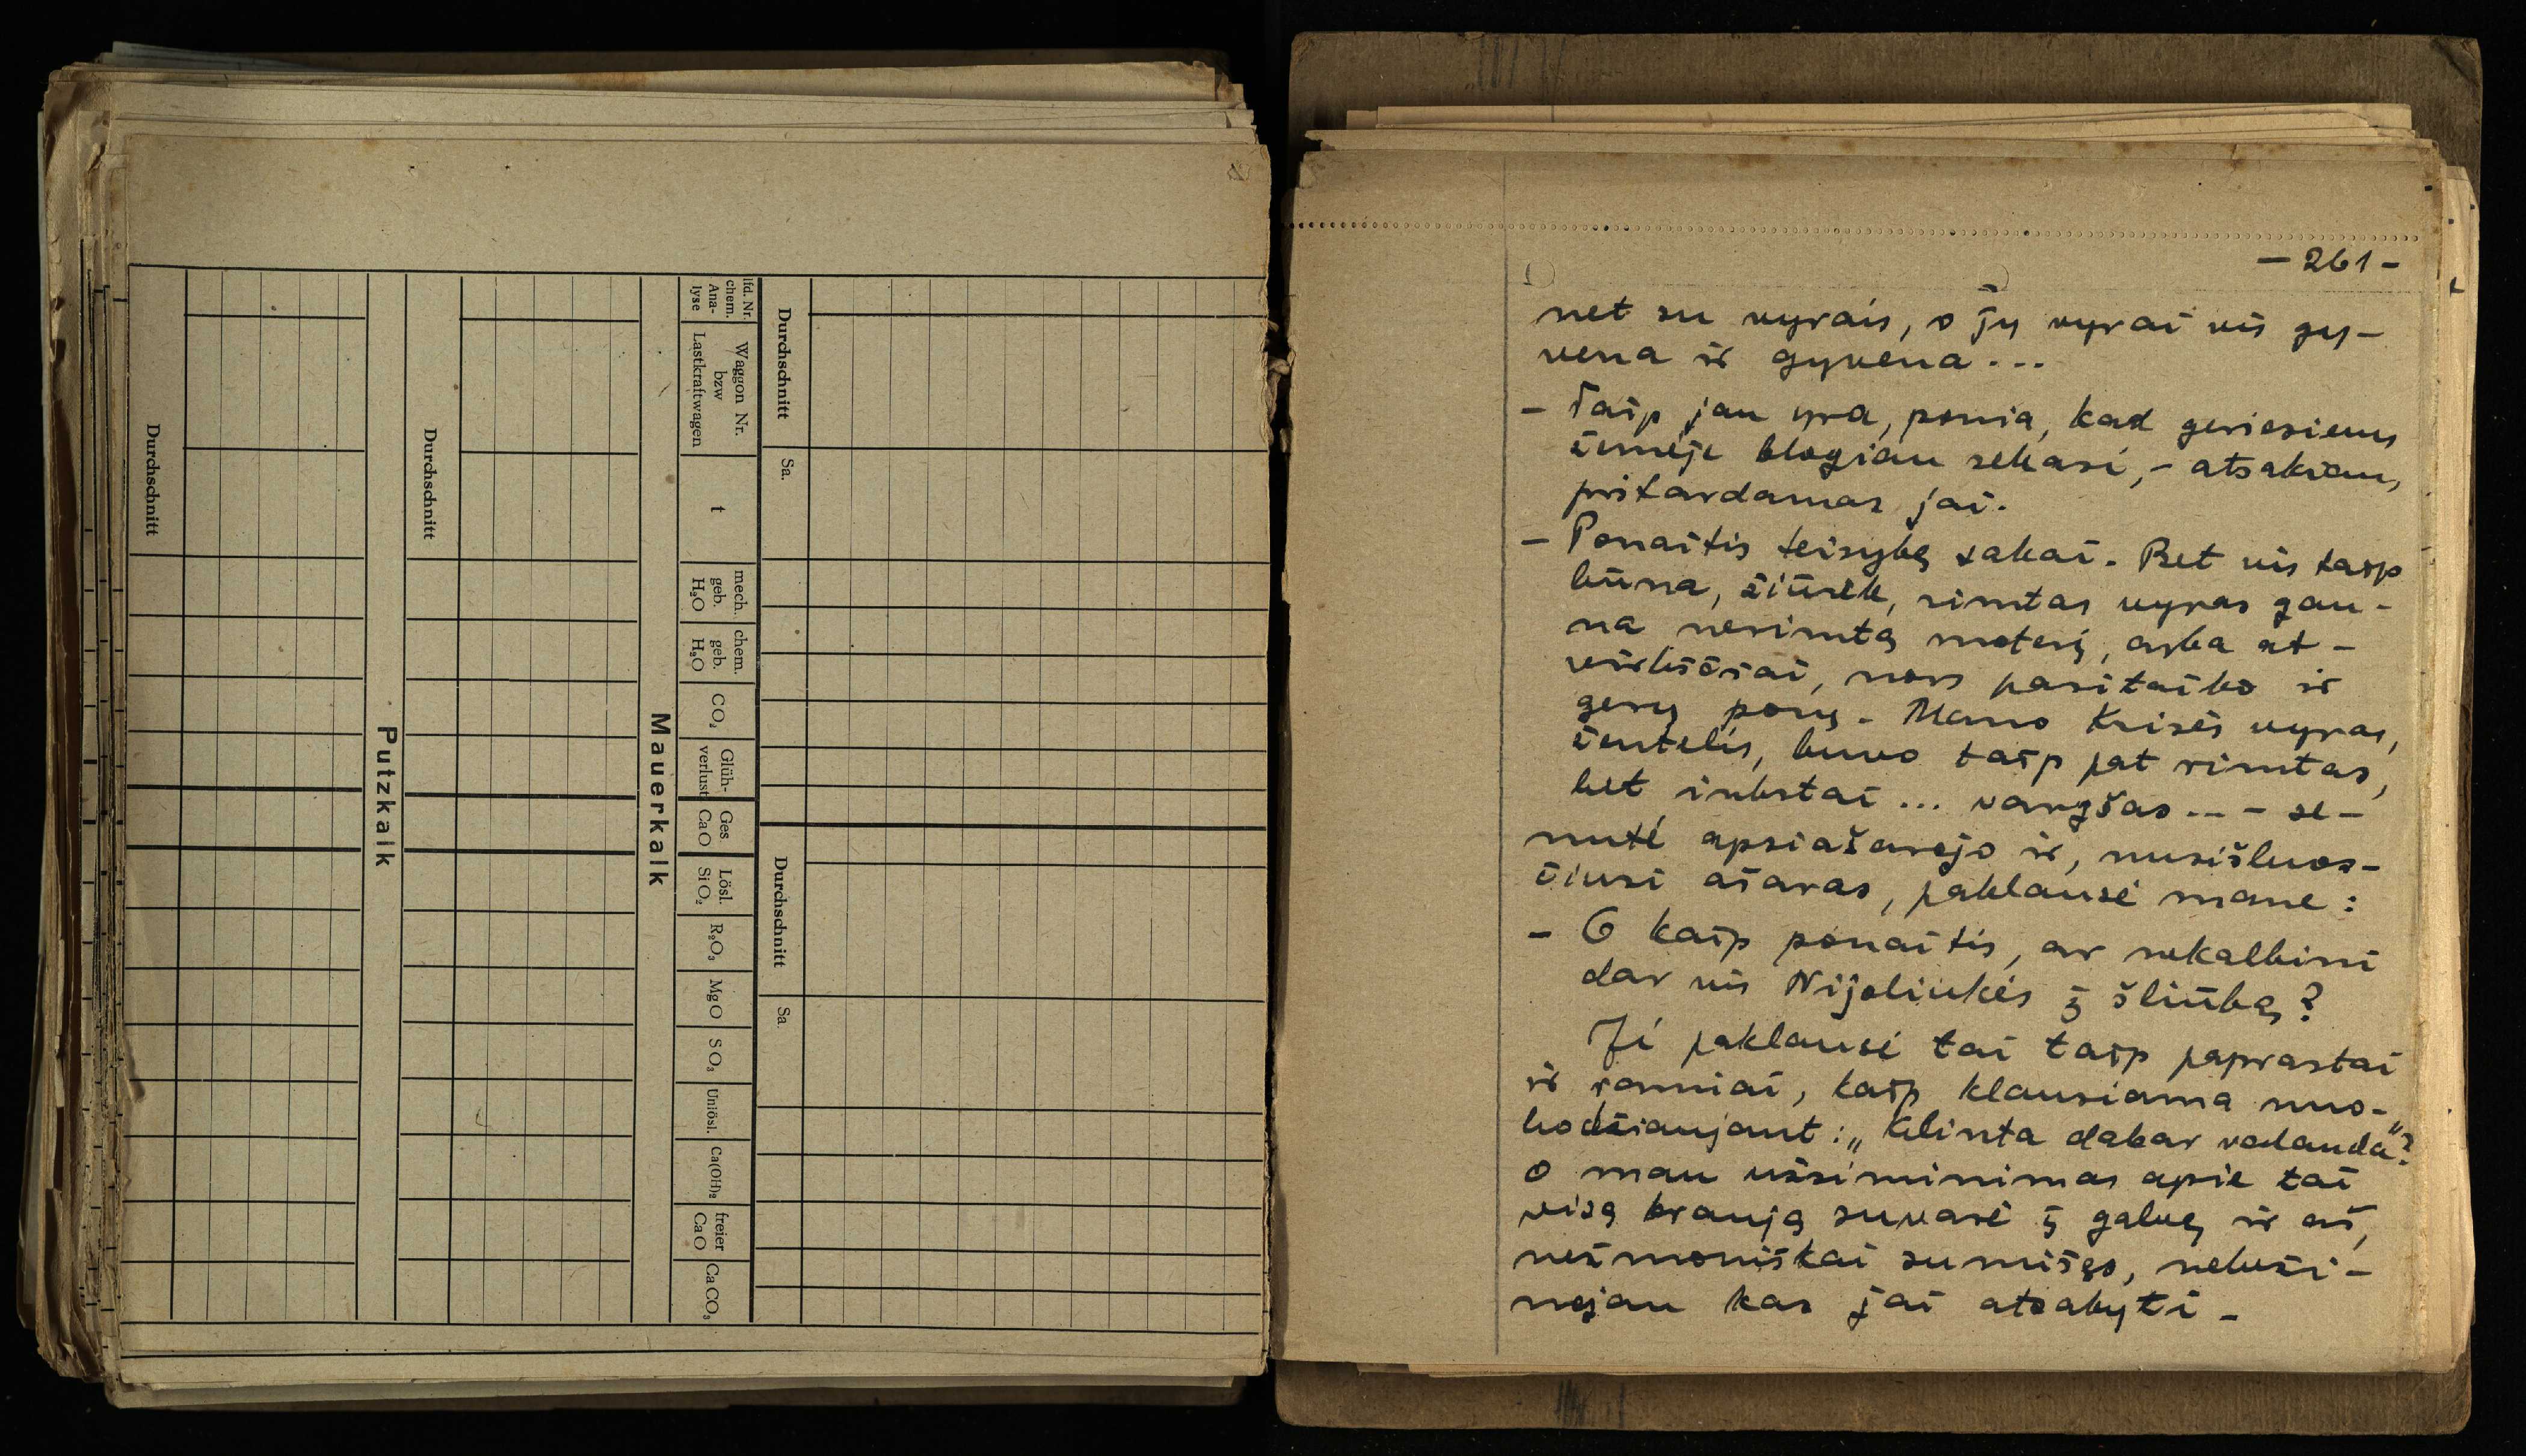 Durchschnitt
Putzkalk
Durchschnitt
Mauerkalk
lfd. Nr.
chem.
Ana-
lyse
Waggon Nr.
bzw
Lastkraftwagen
t
mech.
geb.
H₂O
chem.
geb.
H₂O
CO₂
Glüh-
verlust
Ges.
CaO
Lösl.
SiO₂
R₂O₃
MgO
SO₃
Unlösl.
Ca(OH)₂
freier
CaO
CaCO₃
Durchschnitt
Sa.
Durchschnitt
Sa.
– 261 –
net su vyrais, o jų vyrai vis gy-
vena ir gyvena ...
– Taip jau yra, ponia, kad geriesiems
žemėje blogiau sekasi, – atsakiau,
pritardamas jai.
– Ponaitis teisybę sakai. Bet vis taip
būna, žiūrėk, rimtas vyras gau-
na nerimtą moterį, arba at-
virkščiai, nors pasitaiko ir
gerų porų. Mano Krisės vyras,
žentelis, buvo taip pat rimtas,
bet inkstai ... vargšas ... – se-
nutė apsiašarojo ir, nusišluos-
čiusi ašaras, paklausė mane:
– O kaip ponaitis, ar nekalbini
dar vis Nijoliukės į šliūbą?
Ji paklausė tai taip paprastai
ir ramiai, kaip klausiama nuo-
bodžiaujant: „Kelinta dabar valanda"?
O man užsiminimas apie tai
visą kraują suvarė į galvą ir aš,
nežmoniškai sumišęs, nebeži-
nojau kas jai atsakyti.